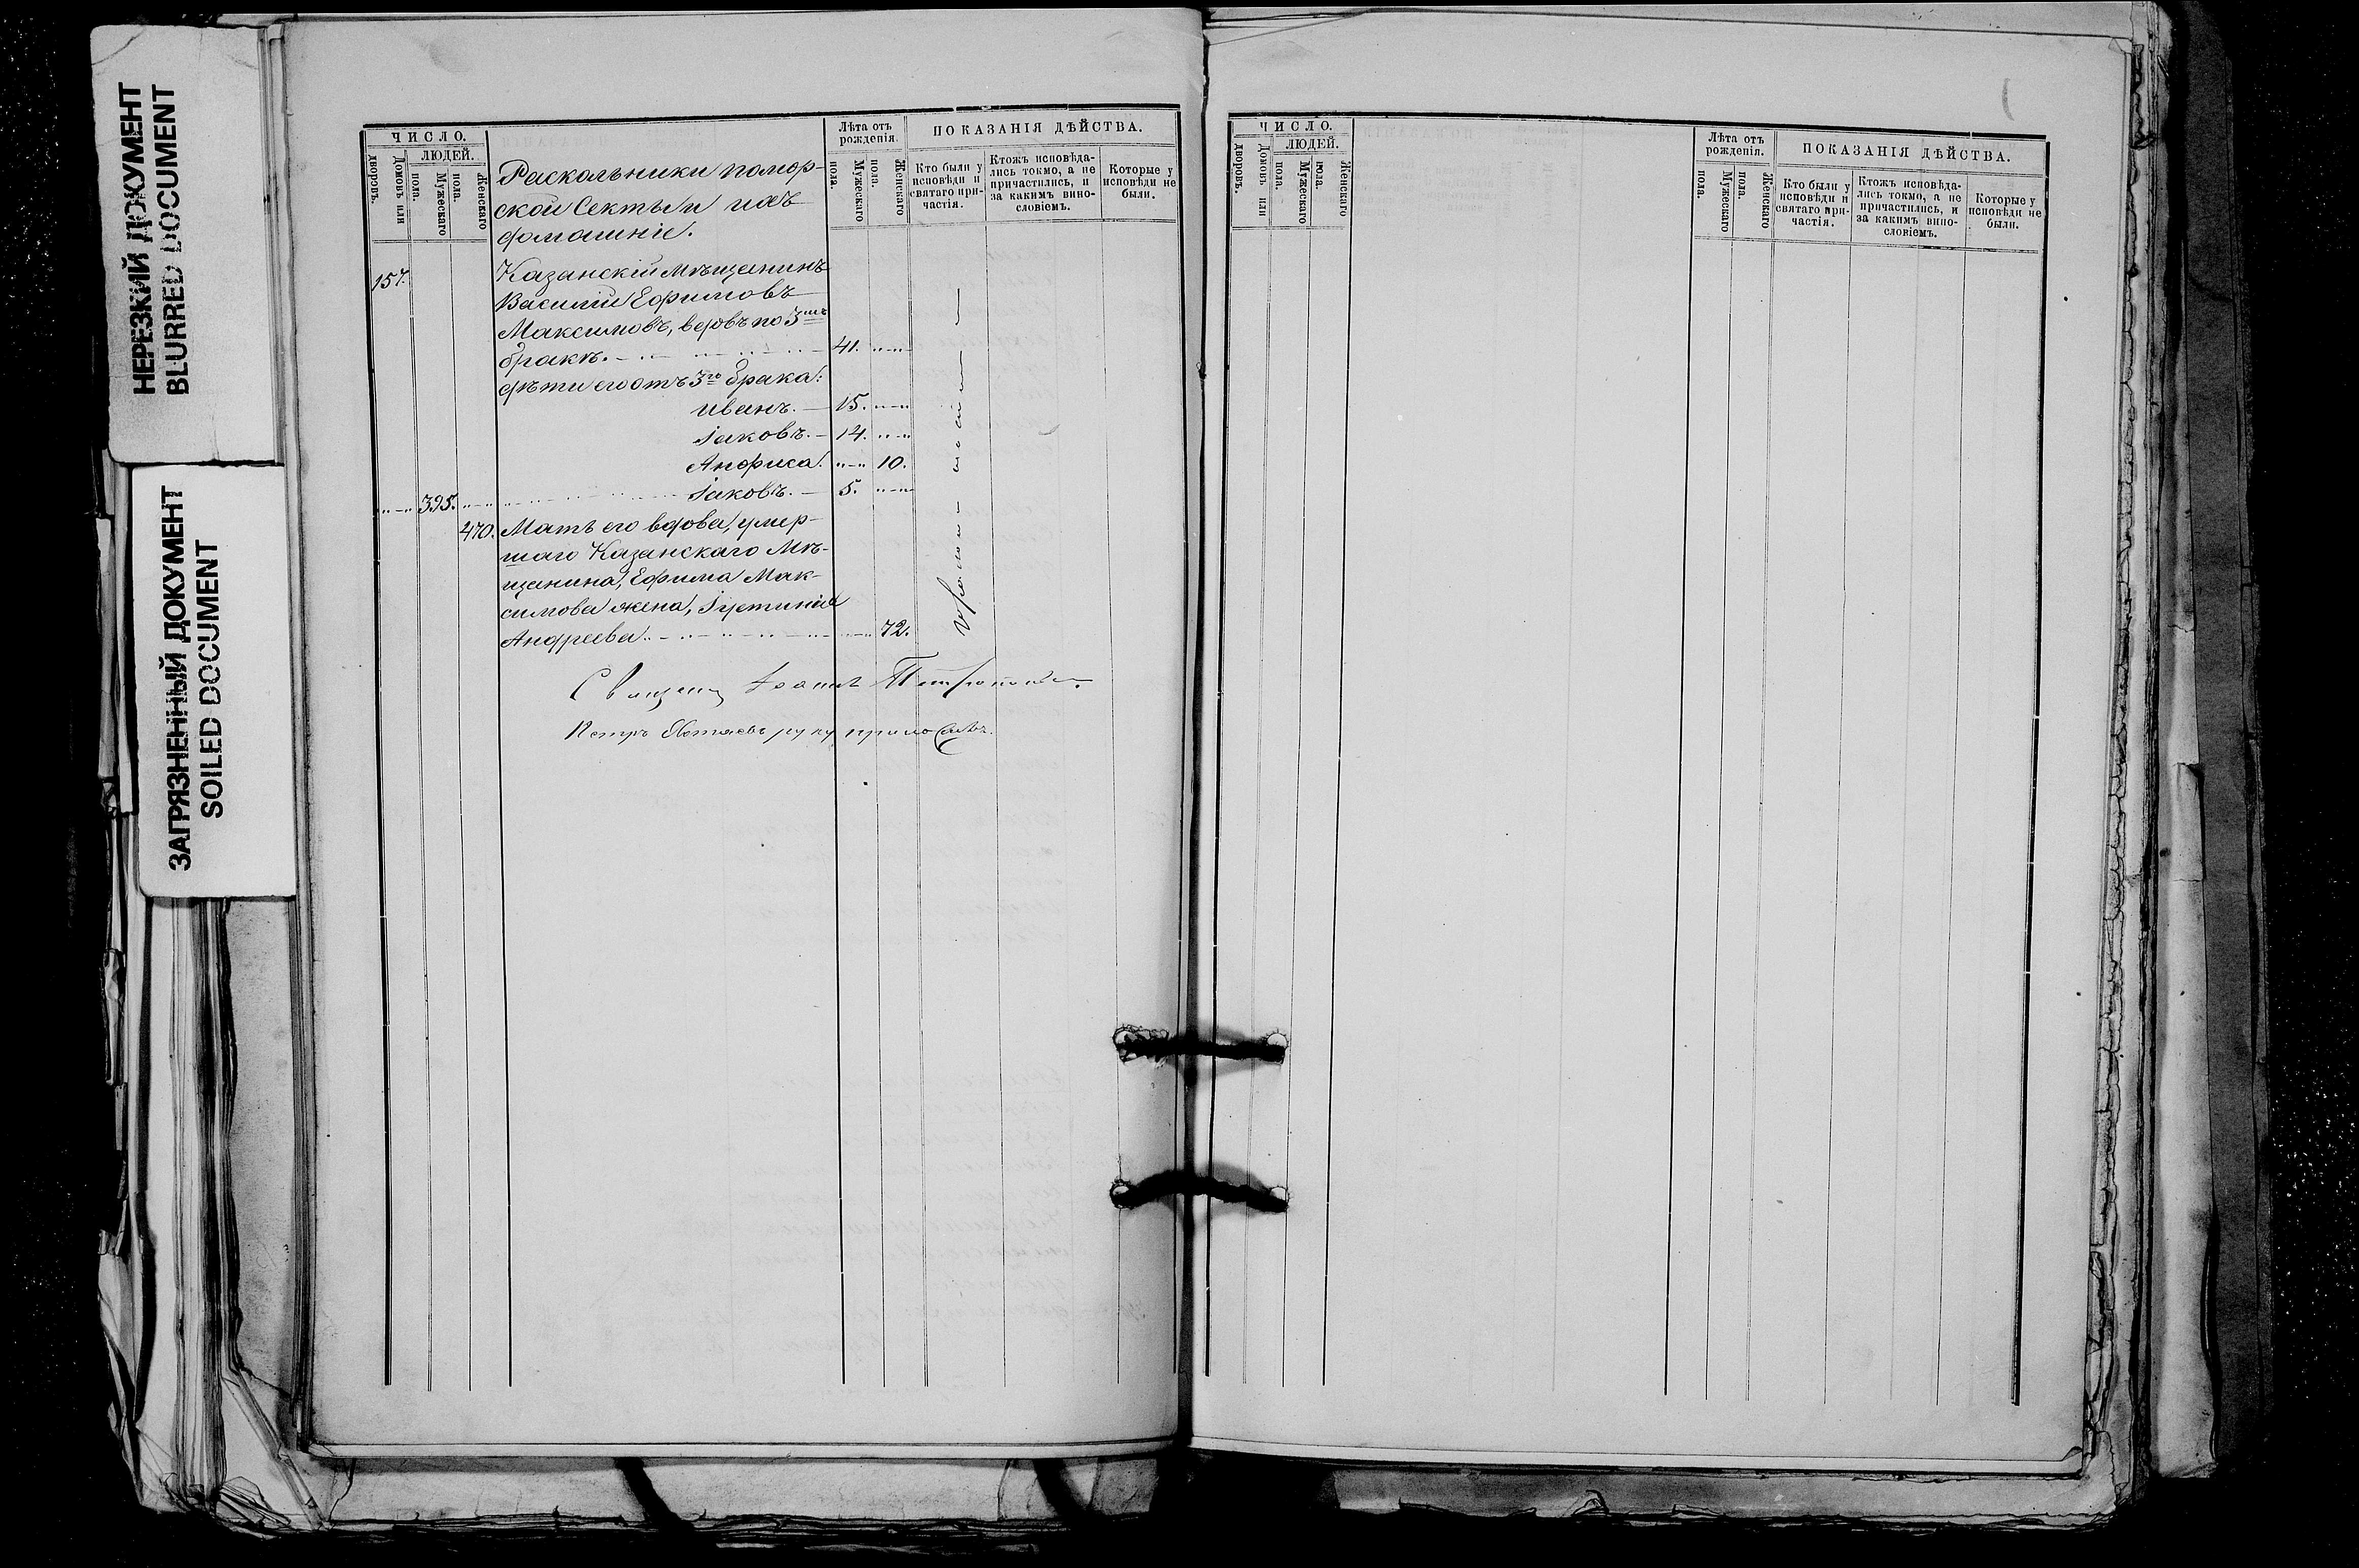 НЕРЕЗКИЙ ДОКУМЕНТ
BLURRED DOCUMENT
ЗАГРЯЗНЕННЫЙ ДОКУМЕНТ
SOILED DOCUMENT
ЧИСЛО.
ЛЮДЕЙ.
Домовъ или дворовъ.
Мужескаго пола.
Женскаго пола.
Раскольники помор-
ской секты и ихъ
домашніе.
Лѣта отъ рожденія.
Мужескаго пола.
Женскаго пола.
ПОКАЗАНІЯ ДѢЙСТВА.
Кто были у исповѣди и святаго при-частія.
Ктожъ исповѣда-лись токмо, а не причастились, и за какимъ вино-словіемъ.
Которые у исповѣди не были.
157. Казанскій мѣщанинъ
Василій Ефимовъ
Максимовъ, вдовъ по 3мъ
бракѣ. 41.
дѣти его отъ 3го брака:
иванъ. 15.
Іаковъ. 14.
Анфиса. 10.
395. Іаковъ. 5.
470. Мать его вдова, умер-
шаго Казанскаго Мѣ-
щанина, Ефима Мак-
симова жена, Іустинія
Андреева 72.
Петръ руку приложилъ.
ЧИСЛО.
ЛЮДЕЙ.
Домовъ или дворовъ.
Мужескаго пола.
Женскаго пола.
Лѣта отъ рожденія.
Мужескаго пола
Женскаго пола.
ПОКАЗАНІЯ ДѢЙСТВА.
Кто были у исповѣди и святаго при-частія.
Ктожъ исповѣда-лись токмо, а не причастились, и за какимъ вино-словіемъ.
Которые у исповѣди не были.